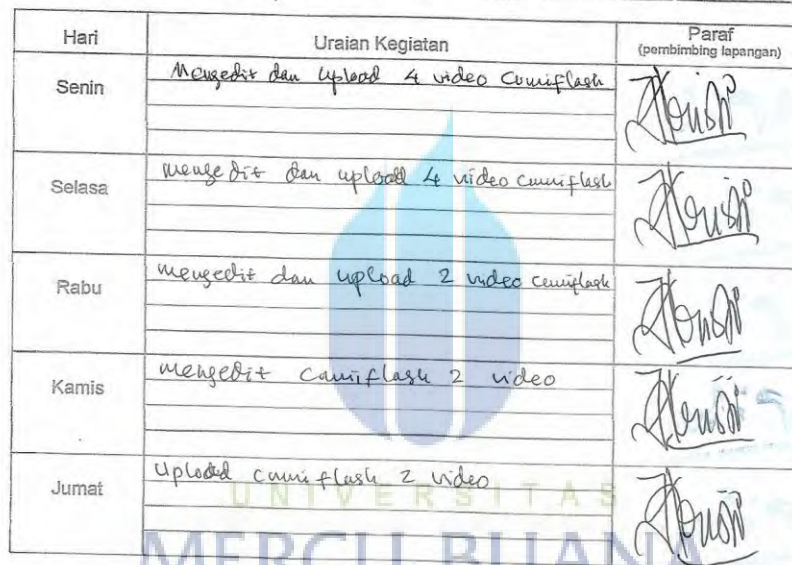 Hari Uraian Kegiatan Paraf
(pembimbing lapangan)
Senin Mengedit dan upload 4 video cumiflash
Selasa mengedit dan upload 4 video cumiflash
Rabu mengedit dan upload 2 video cumiflash
Kamis mengedit cumiflash 2 video
Jumat Uploded cumiflash 2 video
UNIVERSITAS
MERCU BUANA